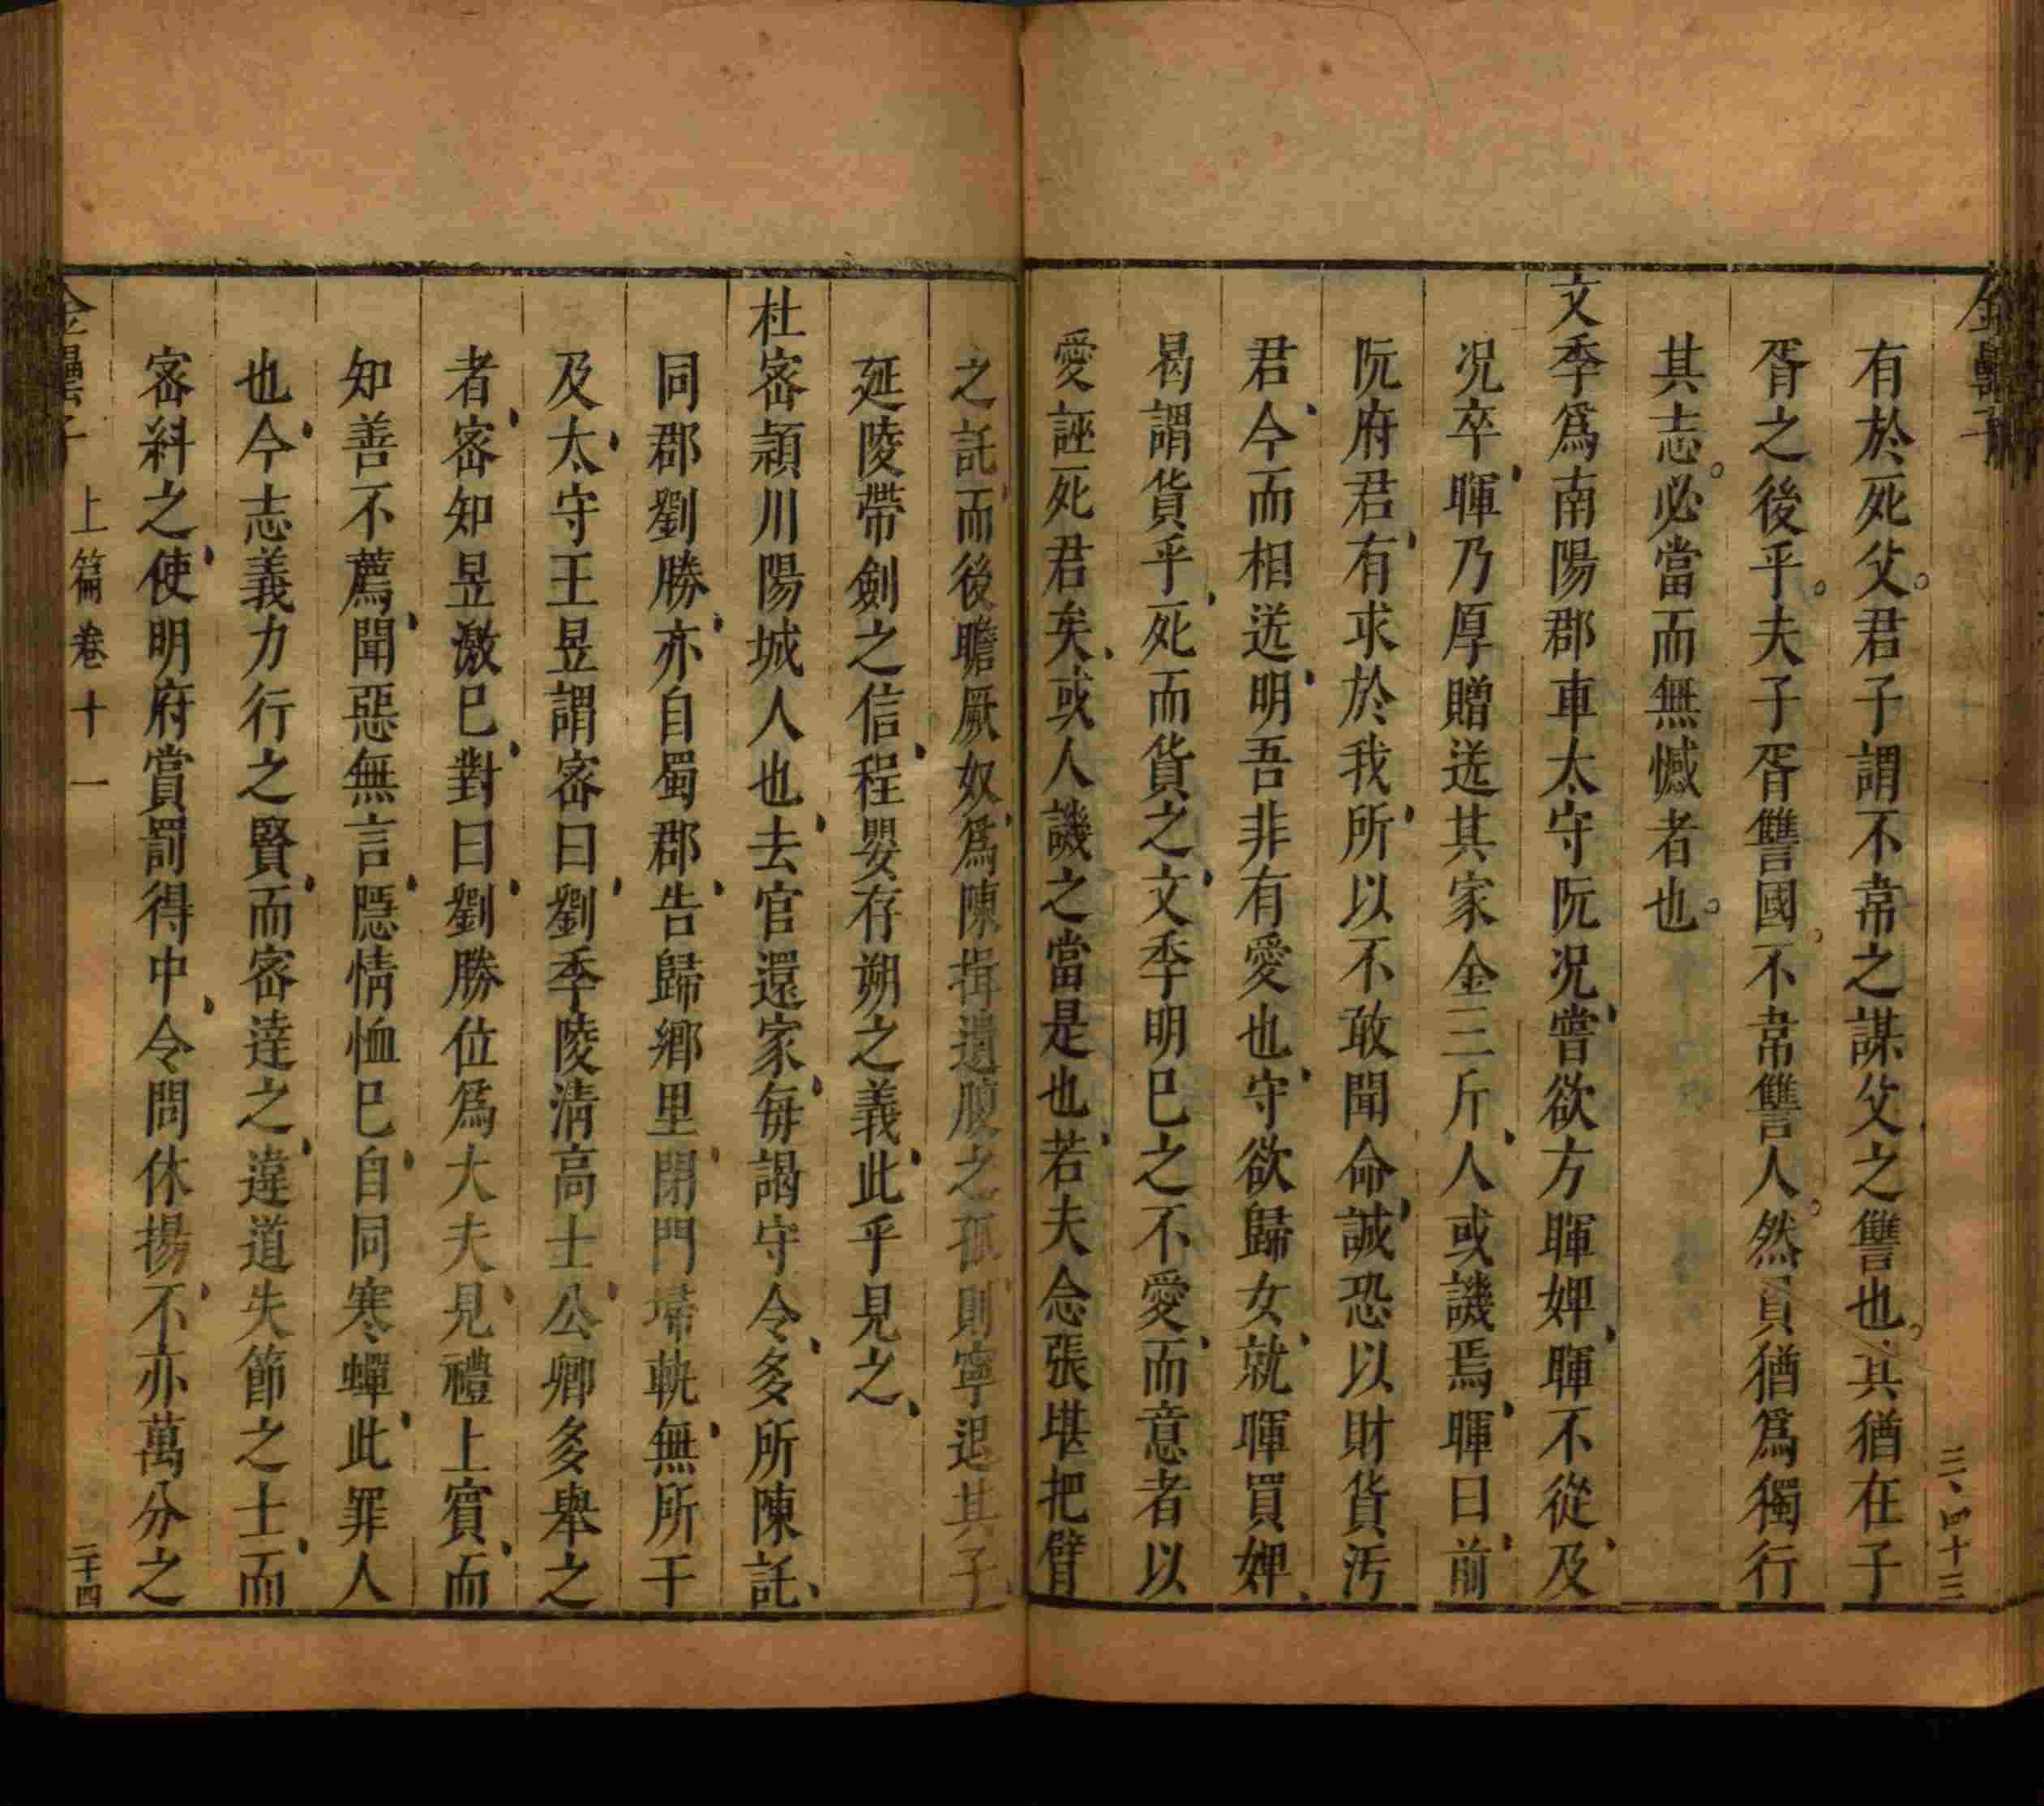 金罍子
三、四十三
有於死父。君子謂不帚之謀父之讐也。其猶在子
胥之後乎。夫子胥讐國。不帚讐人。然員猶爲獨行
其志。必當而無憾者也。
文季爲南陽郡車太守阮况嘗欲方暉婢暉不從及
况卒暉乃厚贈送其家金三斤人或譏焉暉曰前
阮府君有求於我所以不敢聞命誠恐以財貨汚
君今而相送明吾非有愛也守欲歸女就暉買婢
曷謂貨乎死而貨之文季明巳之不愛而意者以
愛誣死君矣或人譏之當是也若夫念張堪把臂
之託而後瞻厥奴爲陳揖遺腹之孤則寧退其子
延陵帶劍之信程嬰存朔之義此乎見之
杜宻頴川陽城人也去官還家每謁守令多所陳託
同郡劉勝亦自蜀郡告歸鄉里閉門埽軌無所干
及太守王昱謂宻曰劉季陵淸高士公卿多舉之
者宻知昱激巳對曰劉勝位爲大夫見禮上賓而
知善不薦聞惡無言隱情恤巳自同寒蟬此罪人
也今志義力行之賢而宻達之違道失節之士而
宻糾之使明府賞罰得中令問休揚不亦萬分之
金罍子 上篇卷十一 二十四